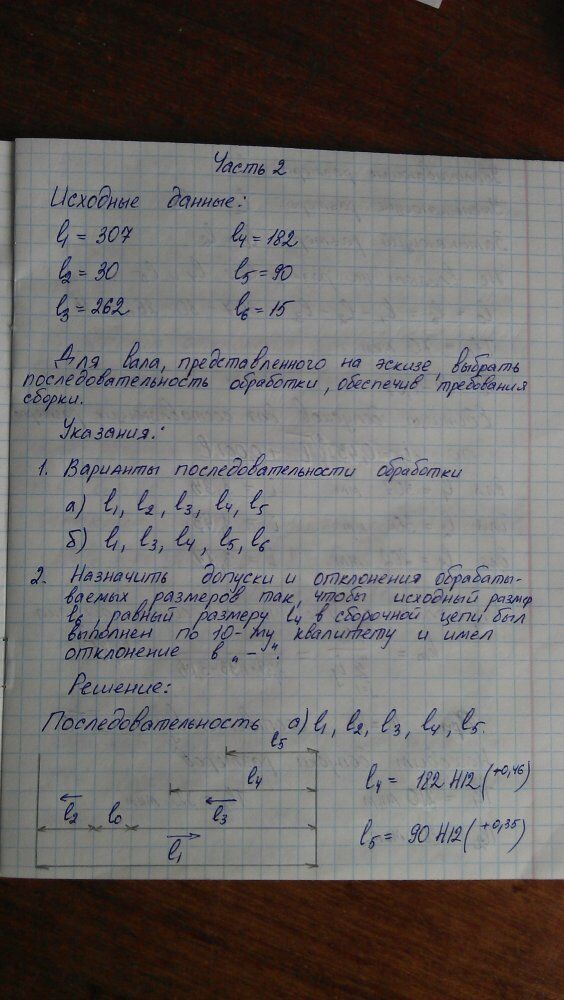 Часть 2
Исходные данные:
l1 = 307 l4 = 182
l2 = 30 l5 = 90
l3 = 262 l6 = 15
Для вала, представленного на эскизе, выбрать
последовательность обработки, обеспечив требования
сборки.
Указания:
1. Варианты последовательности обработки
а) l1, l2, l3, l4, l5
б) l1, l3, l4, l5, l6
2. Назначить допуски и отклонения обрабаты-
ваемых размеров так, чтобы исходный размер
l6, равный размеру l4 в сборочной цепи был
выполнен по 10-му квалитету и имел
отклонение в „-“.
Решение:
Последовательность а) l1, l2, l3, l4, l5.
l5
l4
l2 l0 l3
l1
l4 = 182 H12 (+0,46)
l5 = 90 H12 (+0,35)